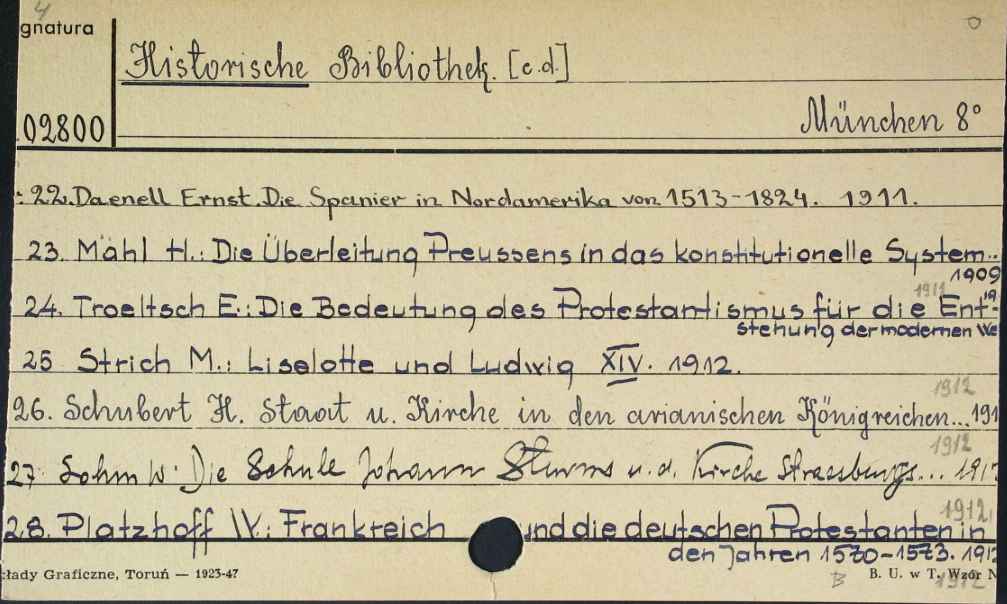 4
gnatura
Historische Bibliothek. [c.d.]
02800
München 8°
: 22. Daenell Ernst. Die Spanier in Nordamerika von 1513-1824. 1911.
23. Mähl H.: Die Überleitung Preussens in das konstitutionelle System..
1909
1911
24. Troeltsch E.: Die Bedeutung des Protestantismus für die Ent-
stehung der modernen We
25 Strich M.: Liselotte und Ludwig XIV. 1912.
1912
26. Schubert H. Staat u. Kirche in den arianischen Königreichen... 191
1912
27 Sohm W. Die Schule Johann Sturms u. d. Kirche Strassburgs... 191
1912
28. Platzhoff W.: Frankreich und die deutschen Protestanten in
den Jahren 1570-1573. 191
kłady Graficzne, Toruń — 1923-47
B
B. U. w T. Wzór N
1912